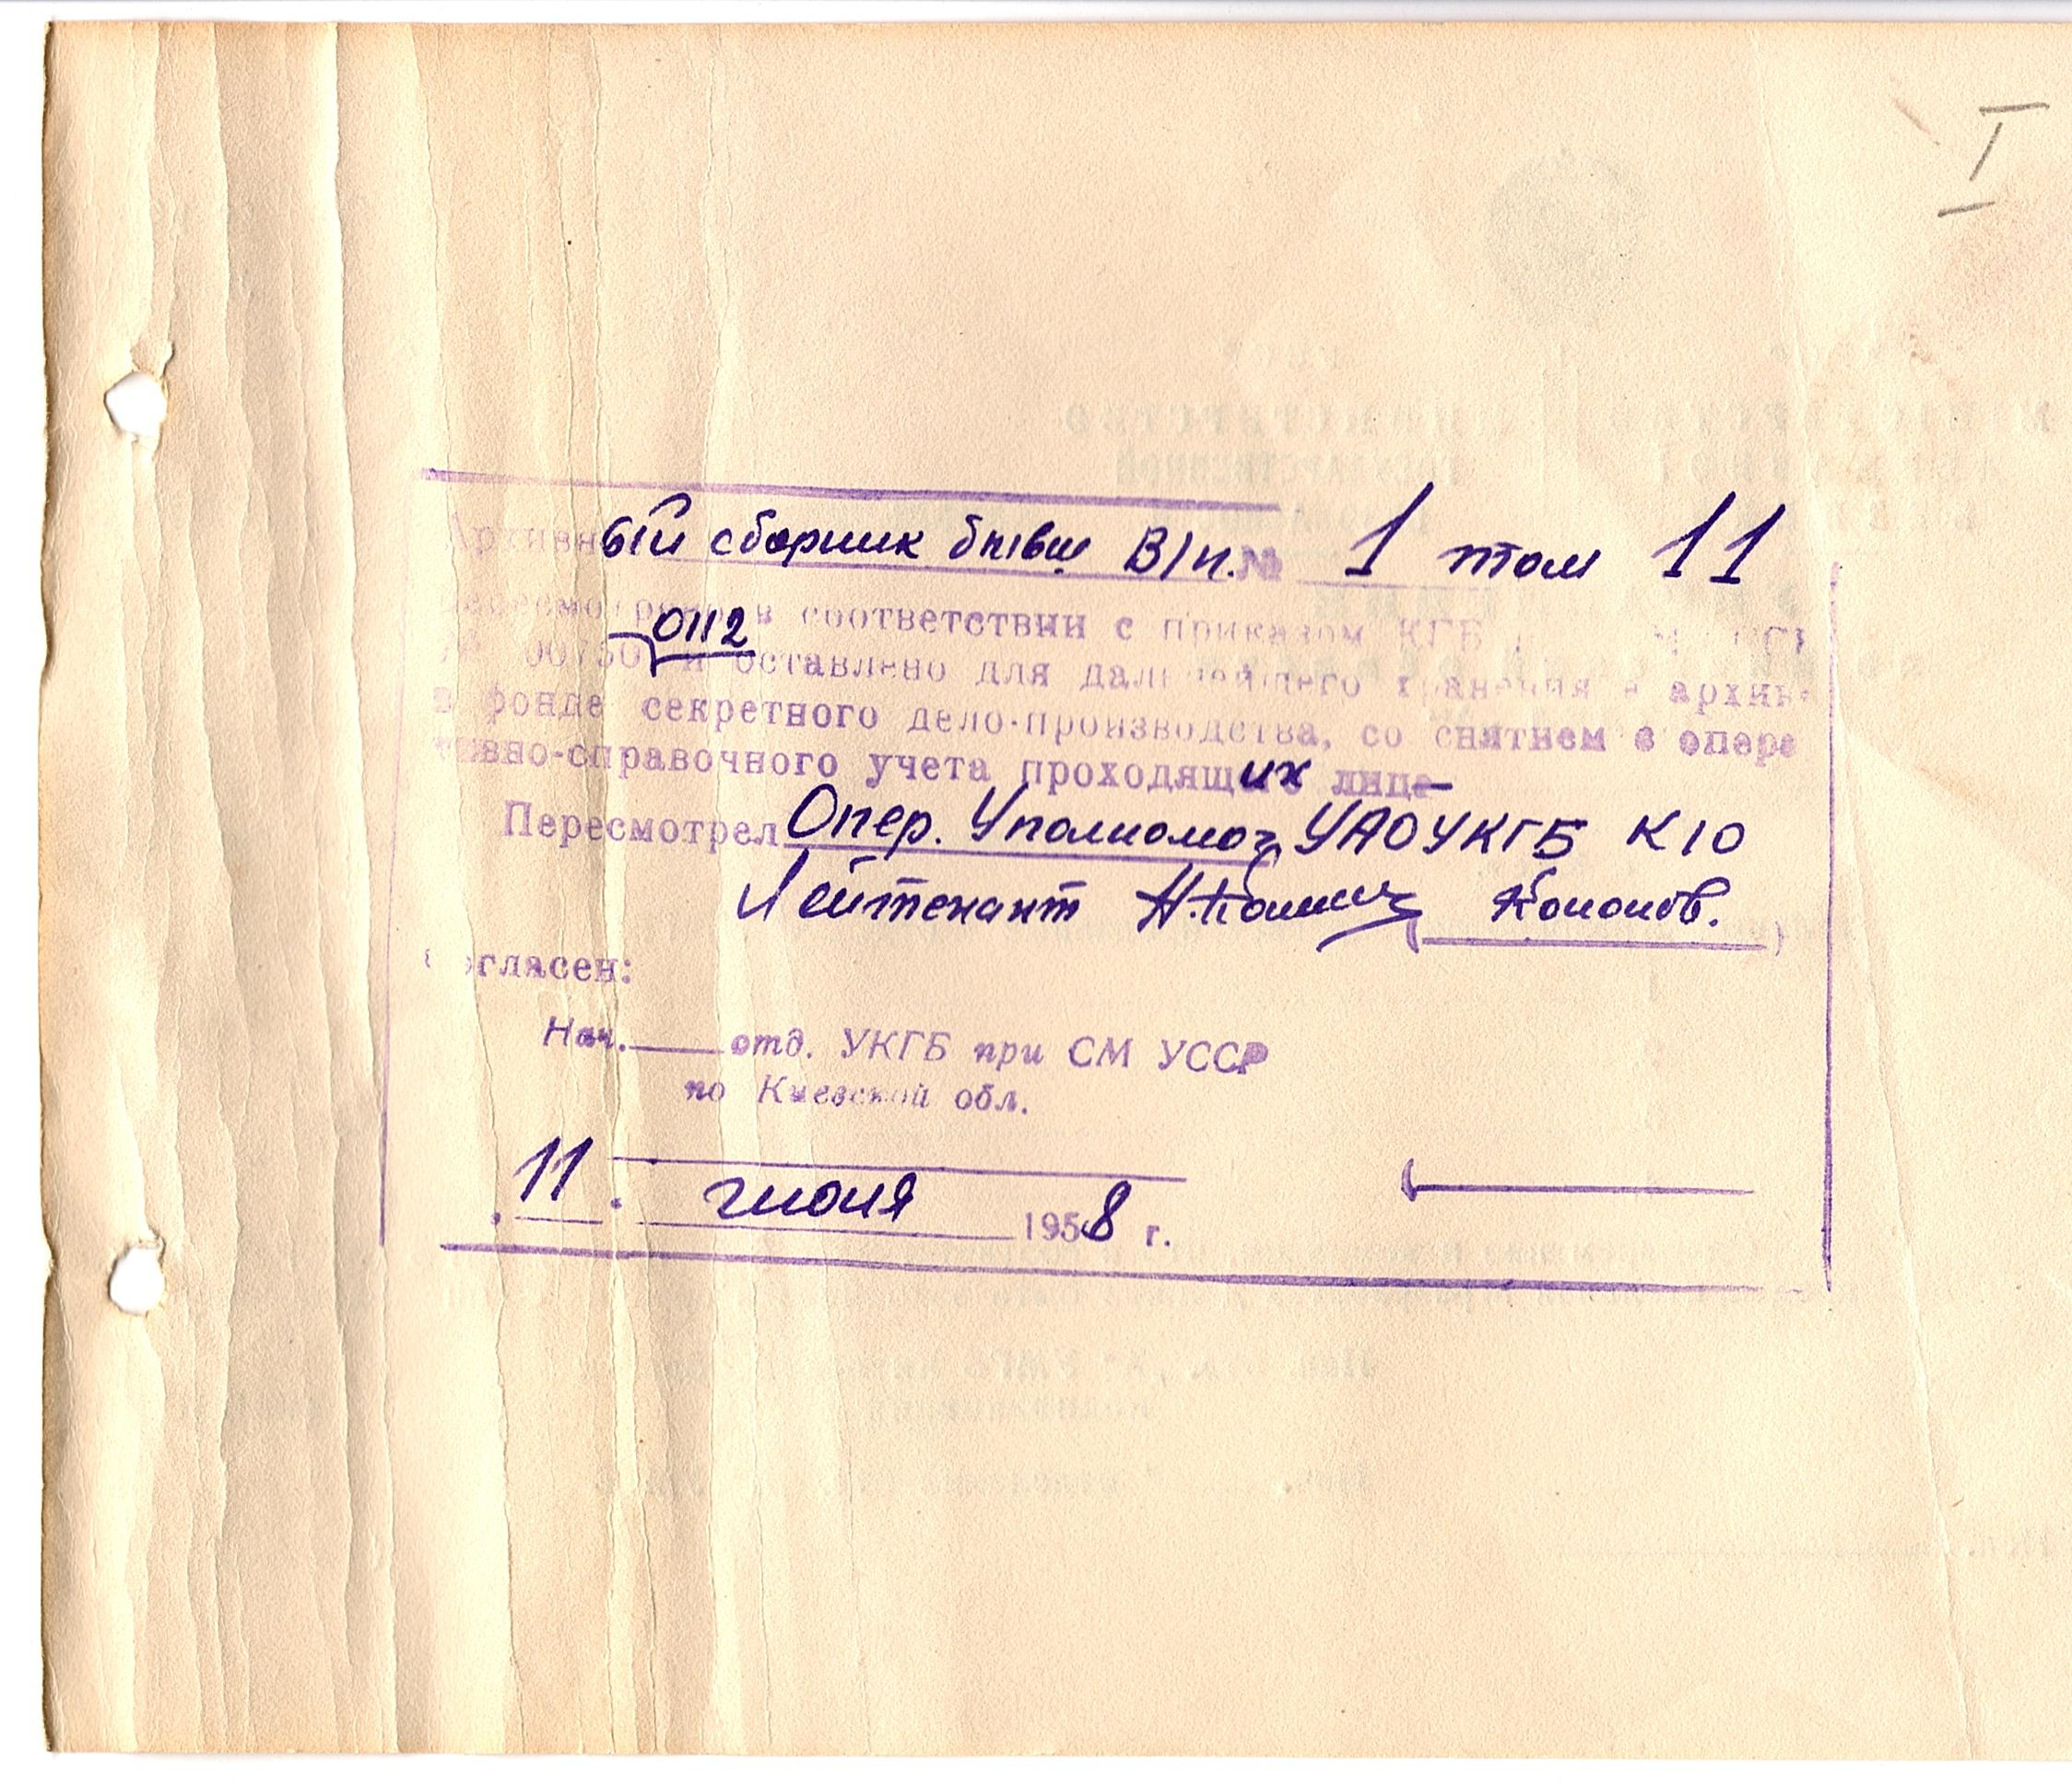 I
Архивный сборник бывш В/п. № 1 том 11
пересмотрено в соответствии с приказом КГБ
0112
№ 00750 и оставлено для дальнейшего хранения в архиве
в фонде секретного дело-производства, со снятием с опера
тивно-справочного учета проходящих лиц
Пересмотрел Опер. Уполномоч УАО УКГБ КIO
Лейтенант Кононов.
Согласен:
Нач. отд. УКГБ при СМ УССР
по Киевской обл.
11. июня 1958 г.